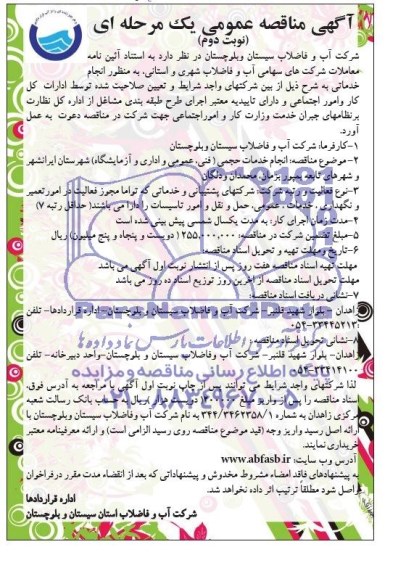 آگهی مناقصه عمومی یک مرحله ای
(نوبت دوم)
شرکت آب و فاضلاب سیستان وبلوچستان در نظر دارد به استناد آئین نامه
معاملات شرکت های سهامی آب و فاضلاب شهری و استانی، به منظور انجام
خدماتی به شرح ذیل از بین شرکتهای واجد شرایط و تعیین صلاحیت شده توسط ادارات کل
کار وامور اجتماعی و دارای تاییدیه معتبر اجرای طرح طبقه بندی مشاغل از اداره کل نظارت
برنظامهای جبران خدمت وزارت کار و اموراجتماعی جهت شرکت در مناقصه دعوت به عمل
آورد.
۱-کارفرما: شرکت آب و فاضلاب سیستان وبلوچستان
۲- موضوع مناقصه: انجام خدمات حجمی (فنی، عمومی و اداری و آزمایشگاه) شهرستان ایرانشهر
و شهرهای تابعه بمپور بزمان، محمدان ودلگان
۳-نوع فعالیت و رتبه شرکت: شرکتهای پشتیبانی و خدماتی که تواما مجوز فعالیت در امور تعمیر
و نگهداری، خدمات عمومی، حمل و نقل و امور تاسیسات را دارا می باشند( حداقل رتبه ۷)
۴-مدت زمان اجرای کار: به مدت یکسال شمسی پیش بینی شده است
۵-مبلغ تضمین شرکت در مناقصه: ۲۵۵,۰۰۰,۰۰۰ (دویست و پنجاه و پنج میلیون) ریال
۶-تاریخ ومهلت تهیه و تحویل اسناد مناقصه:
مهلت تهیه اسناد مناقصه هفت روز پس از انتشار نوبت اول آگهی می باشد
مهلت تحویل اسناد مناقصه از آخرین روز توزیع اسناد ده روز می باشد
۷-نشانی دریافت اسناد مناقصه:
زاهدان - بلوار شهید قلنبر- شرکت آب و فاضلاب سیستان و بلوچستان- اداره قراردادها- تلفن
۸-نشانی تحویل اسناد مناقصه:
زاهدان- بلوار شهید قلنبر- شرکت آب وفاضلاب سیستان و بلوچستان-واحد دبیرخانه - تلفن
پایگاه اطلاع رسانی مناقصه و مزایده
لذا شرکتهای واجد شرایط می توانند پس از چاپ نوبت اول آگهی با مراجعه به آدرس فوق،
اسناد مناقصه را پس از واریز مبلغ ریال به حساب بانک رسالت شعبه
مرکزی زاهدان به شماره به نام شرکت آب وفاضلاب سیستان وبلوچستان با
ارائه اصل رسید واریز وجه (قید موضوع مناقصه روی رسید الزامی است) و ارائه معرفینامه معتبر
خریداری نمایند.
آدرس وب سایت: www.abfasb.ir
به پیشنهادهای فاقد امضاء مشروط مخدوش و پیشنهاداتی که بعد از انقضاء مدت مقرر درفراخوان
واصل شود مطلقاً ترتیب اثر داده نخواهد شد.
اداره قراردادها
شرکت آب و فاضلاب استان سیستان و بلوچستان